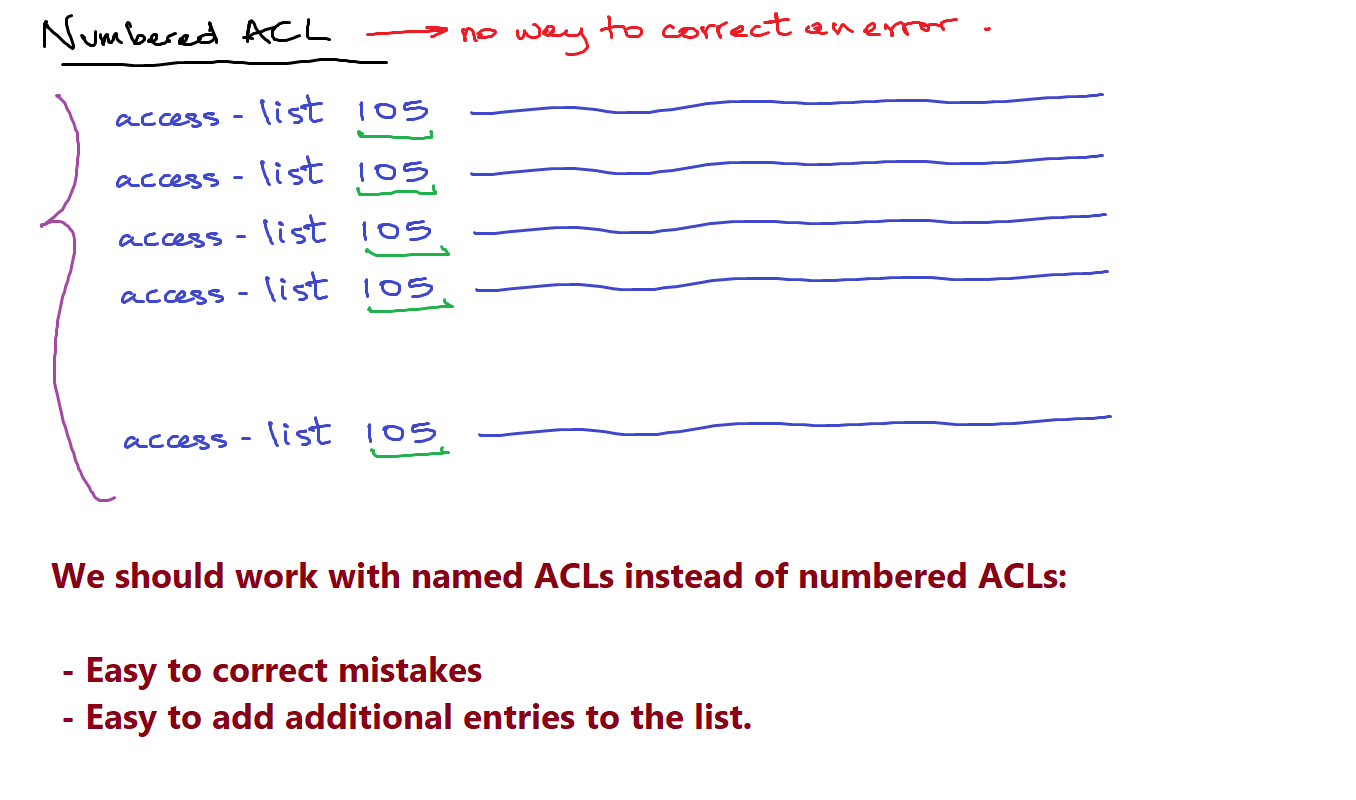 Numbered ACL → no way to correct an error.
access-list 105
access-list 105
access-list 105
access-list 105
access-list 105
We should work with named ACLs instead of numbered ACLs:
- Easy to correct mistakes
- Easy to add additional entries to the list.